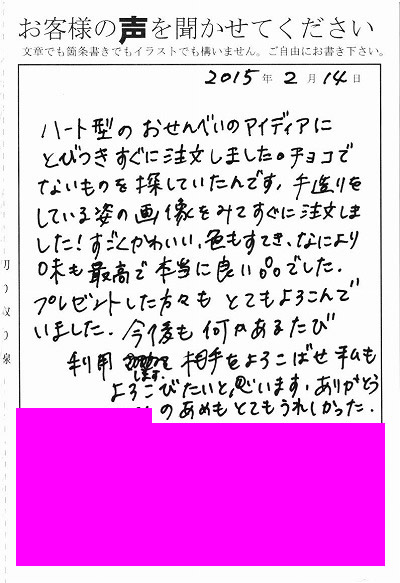 お客様の声を聞かせてください
文章でも箇条書きでもイラストでも構いません。ご自由にお書き下さい。
2015年2月14日
ハート型のおせんべいのアイディアに
とびつきすぐに注文しました。チョコで
ないものを探していたんです。手造りを
している姿の画像をみてすぐに注文しま
した!すごくかわいい、色もすてき、なにより
味も最高で本当に良い品でした。
プレゼントした方々もとてもよろこんで
いました。今後も何かあるたび
利用します。相手をよろこばせ私も
よろこびたいと思います。ありがとう
のあめもとてもうれしかった.
切り取り線